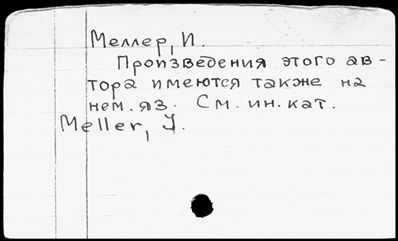 Меллер, И.
Произведения этого ав-
тора имеются также на
нем. яз. См. ин. кат.
Meller, J.